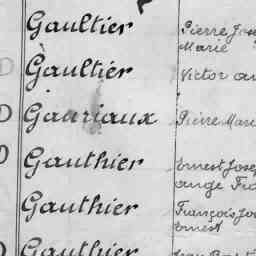 Gaultier Pierre
Marie
Gaultier Victor
Gauriaux Pierre Marie
Gauthier Ernest Josep
ange
Gauthier François
Ernest
Gauthier